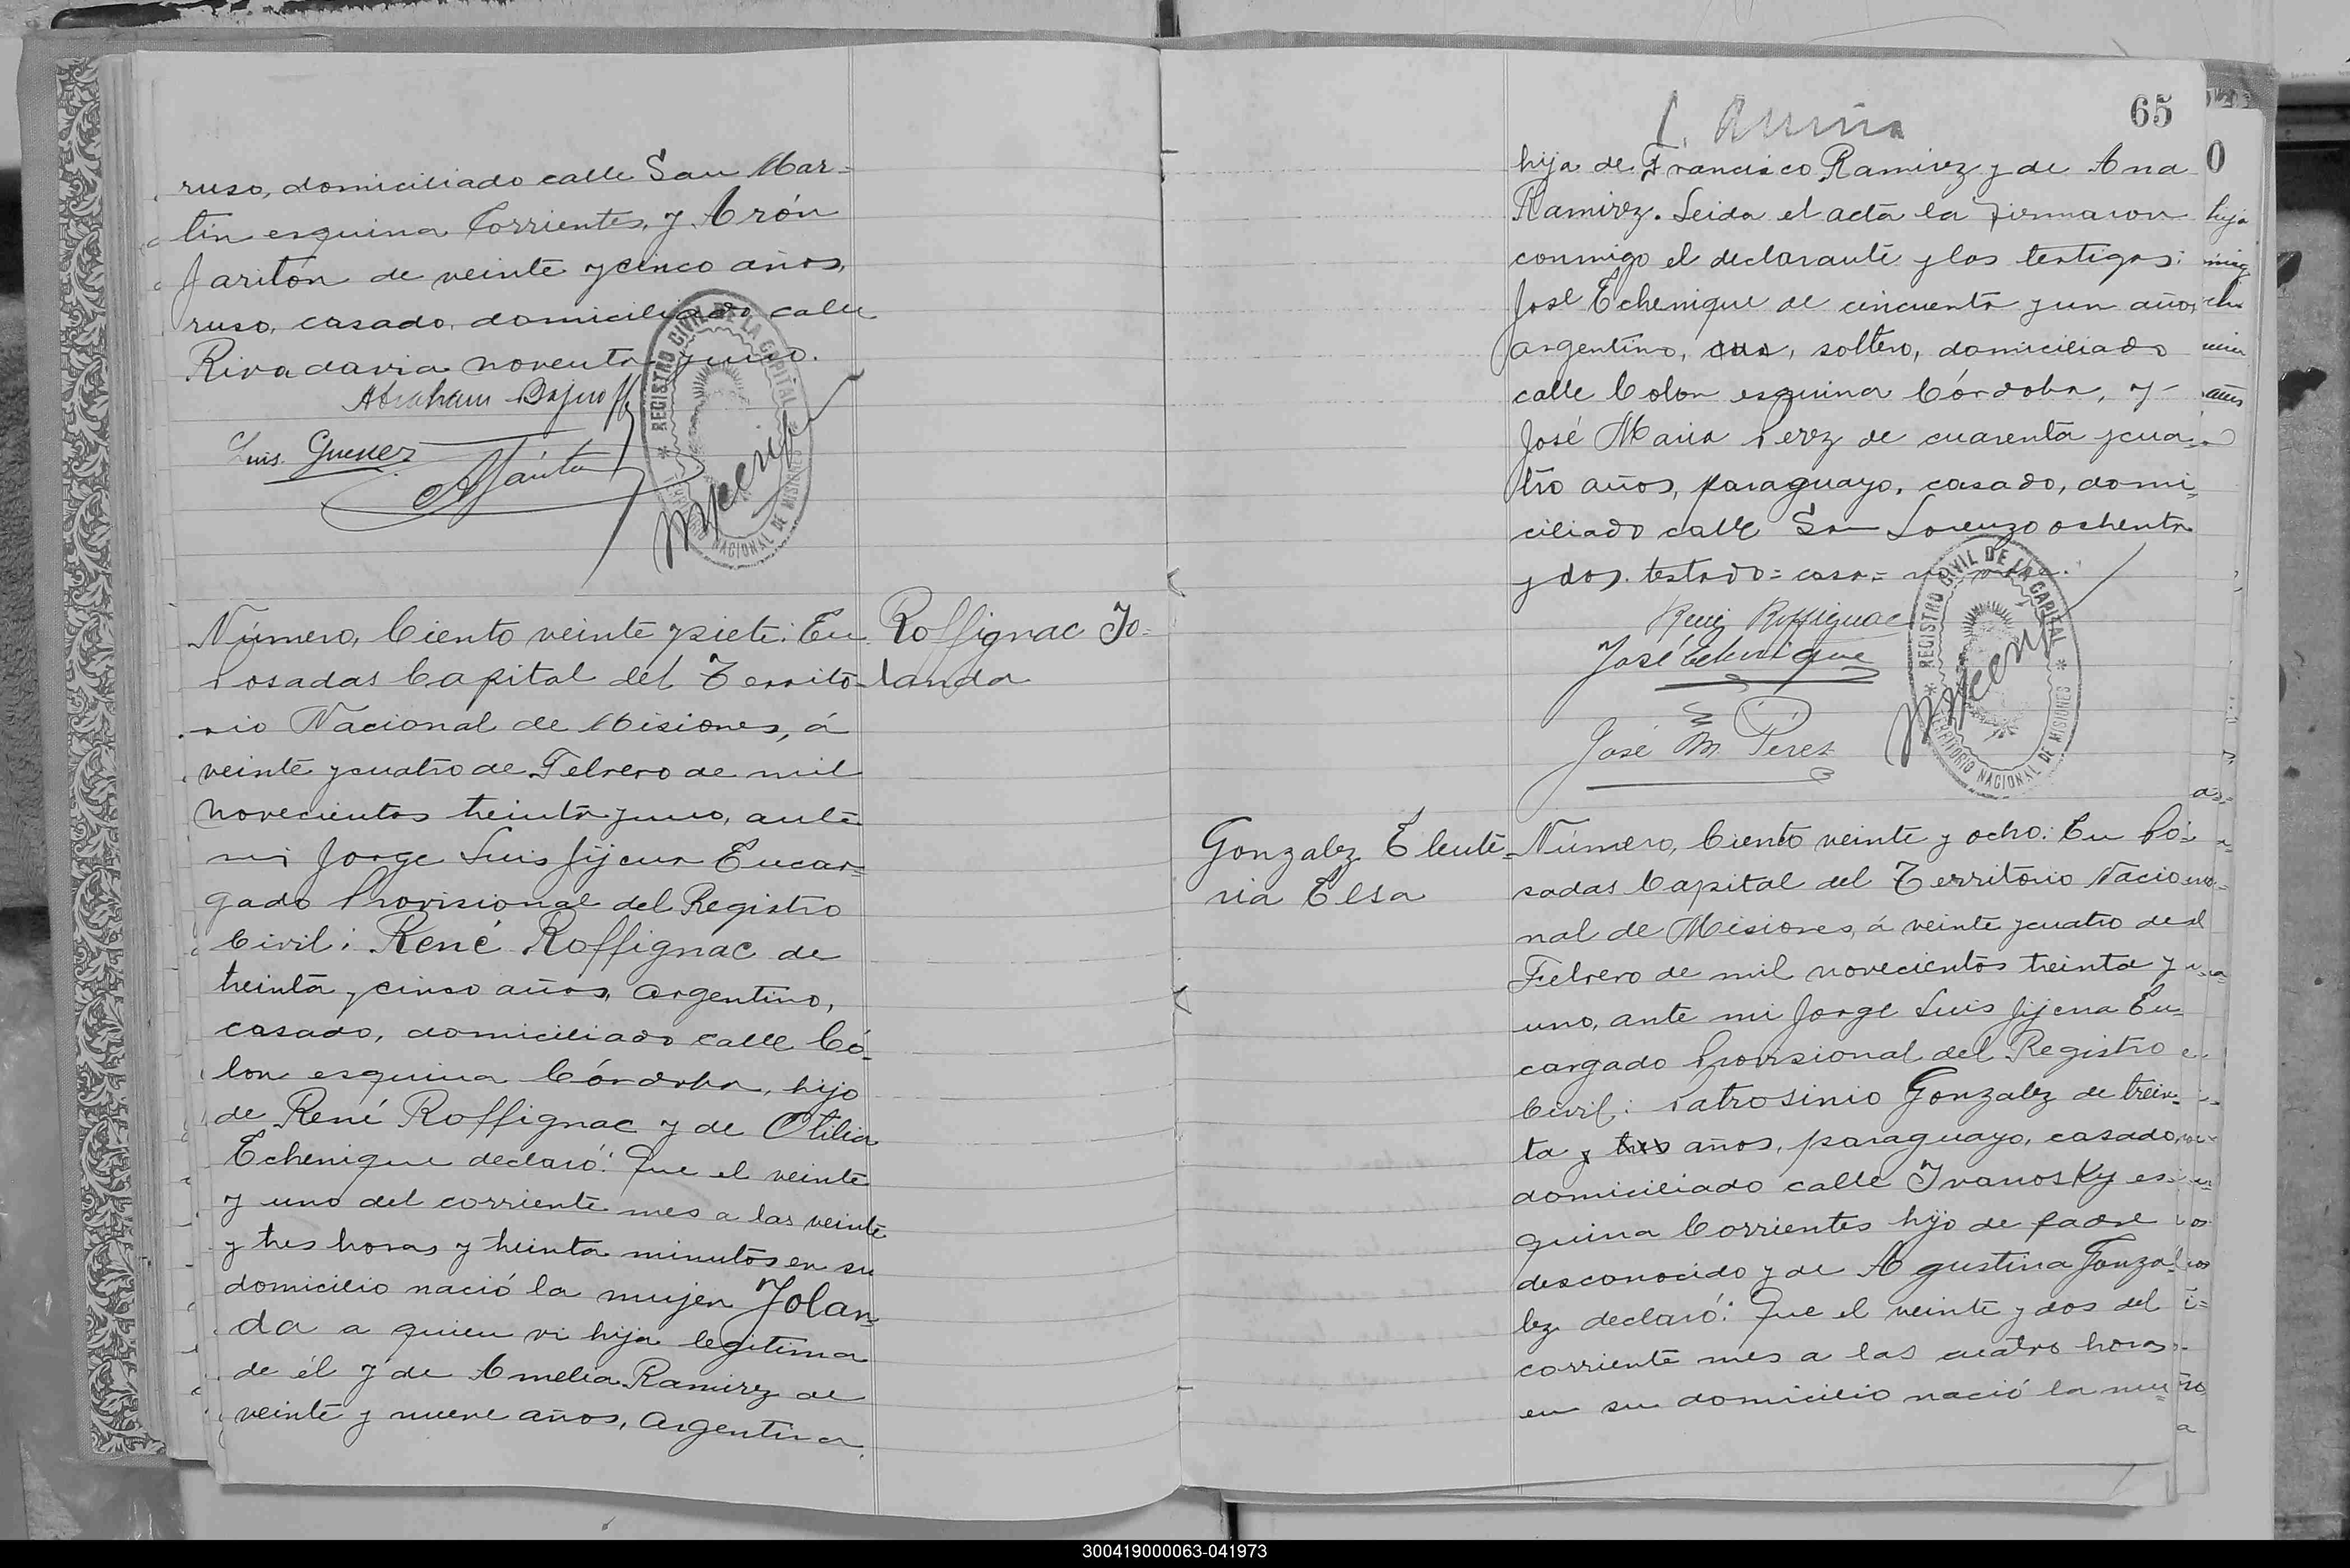 ruso, domiciliado calle San Mar=
tín esquina Corrientes, y Arón
Jaritón de veinte y cinco años,
ruso, casado, domiciliado calle
Rivadavia noventa y uno.
Abraham
Luis
REGISTRO CIVIL DE LA CAPITAL
TERRITORIO NACIONAL DE MISIONES
Número, Ciento veinte y siete: En
Posadas Capital del Territo-
rio Nacional de Misiones, á
veinte y cuatro de Febrero de mil
novecientos treinta y uno, ante
mi Jorge Luis Jijena Encar=
gado Provisional del Registro
Civil: René Roffignac de
treinta y cinco años, argentino,
casado, domiciliado calle Có-
lon esquina Córdoba, hijo
de René Roffignac y de Otilia
Echenique declaró: Que el veinte
y uno del corriente mes a las veinte
y tres horas y treinta minutos en su
domicilio nació la mujer Jolan-
da a quien vi hija legitima
de él y de Amelia Ramirez de
veinte y nueve años, argentina,
Roffignac Jo-
landa
65
hija de Francisco Ramirez y de Ana
Ramirez. Leida el acta la firmaron
conmigo el declarante y los testigos:
José Echenique de cincuenta y un años,
argentino, casa, soltero, domiciliado
calle Colon esquina Córdoba, y-
José Maria Perez de cuarenta y cua-
tro años, paraguayo, casado, domi-
ciliado calle San Lorenzo ochenta
y dos. testado= casa= no vale.
René Roffignac
José Echenique
José M. Pérez
REGISTRO CIVIL DE LA CAPITAL
TERRITORIO NACIONAL DE MISIONES
Gonzalez Eleute-
ria Elsa
Número, Ciento veinte y ocho: En Po-
sadas Capital del Territorio Nacio-
nal de Misiones, á veinte y cuatro de
Febrero de mil novecientos treinta y
uno, ante mi Jorge Luis Jijena En-
cargado Provisional del Registro
Civil: Patrosinio Gonzalez de trein-
ta y tres años, paraguayo, casado,
domiciliado calle Ivanosky es-
quina Corrientes hijo de padre
desconocido y de Agustina Gonza-
lez declaró: Que el veinte y dos del
corriente mes a las cuatro horas
en su domicilio nació la mu=
300419000063-041973